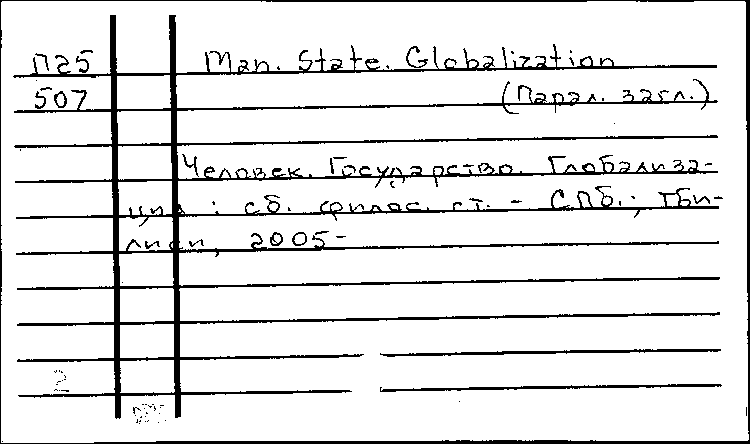 П25 Man. State. Globalization
507 (Парал. загл.)
Человек. Государство. Глобализа-
ция : сб. филос. ст. - СПб.; Тби-
лиси, 2005-
2